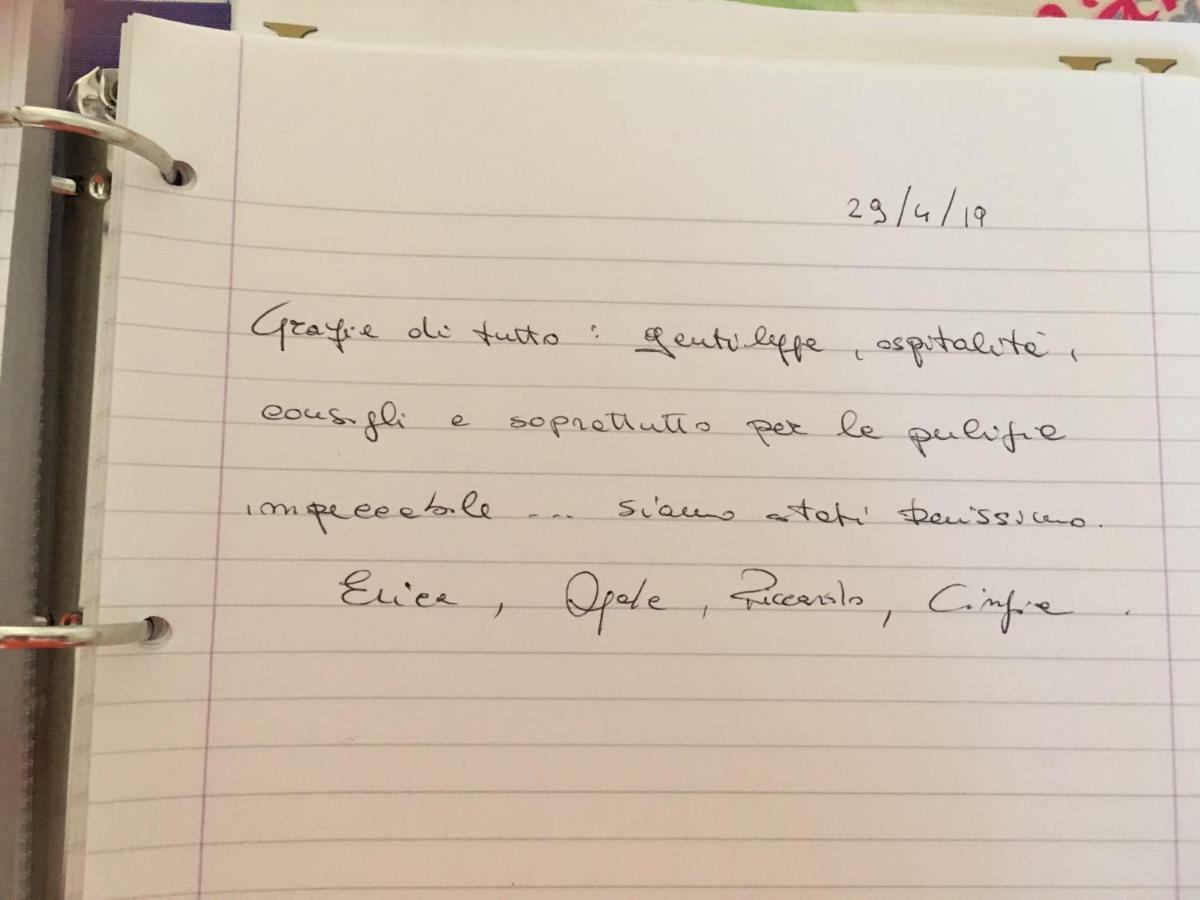 29/4/19
Grazie di tutto: gentilezze, ospitalità,
consigli e soprattutto per le pulizie
impeccabile ... siamo stati benissimo.
Erica, Opale, Riccardo, Cinzia.